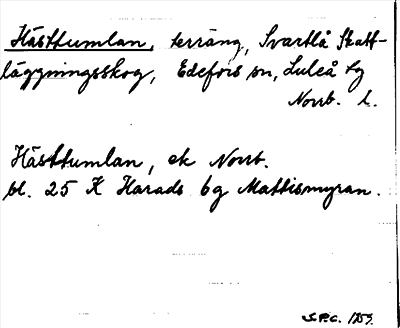 Hästtumlan, terräng, Svartlå Skatt-
läggningsskog, Edefors sn, Luleå tg
Norrb. l.
Hästtumlan, ek Norrb.
bl. 25 K Harads 6g Mattismyran.